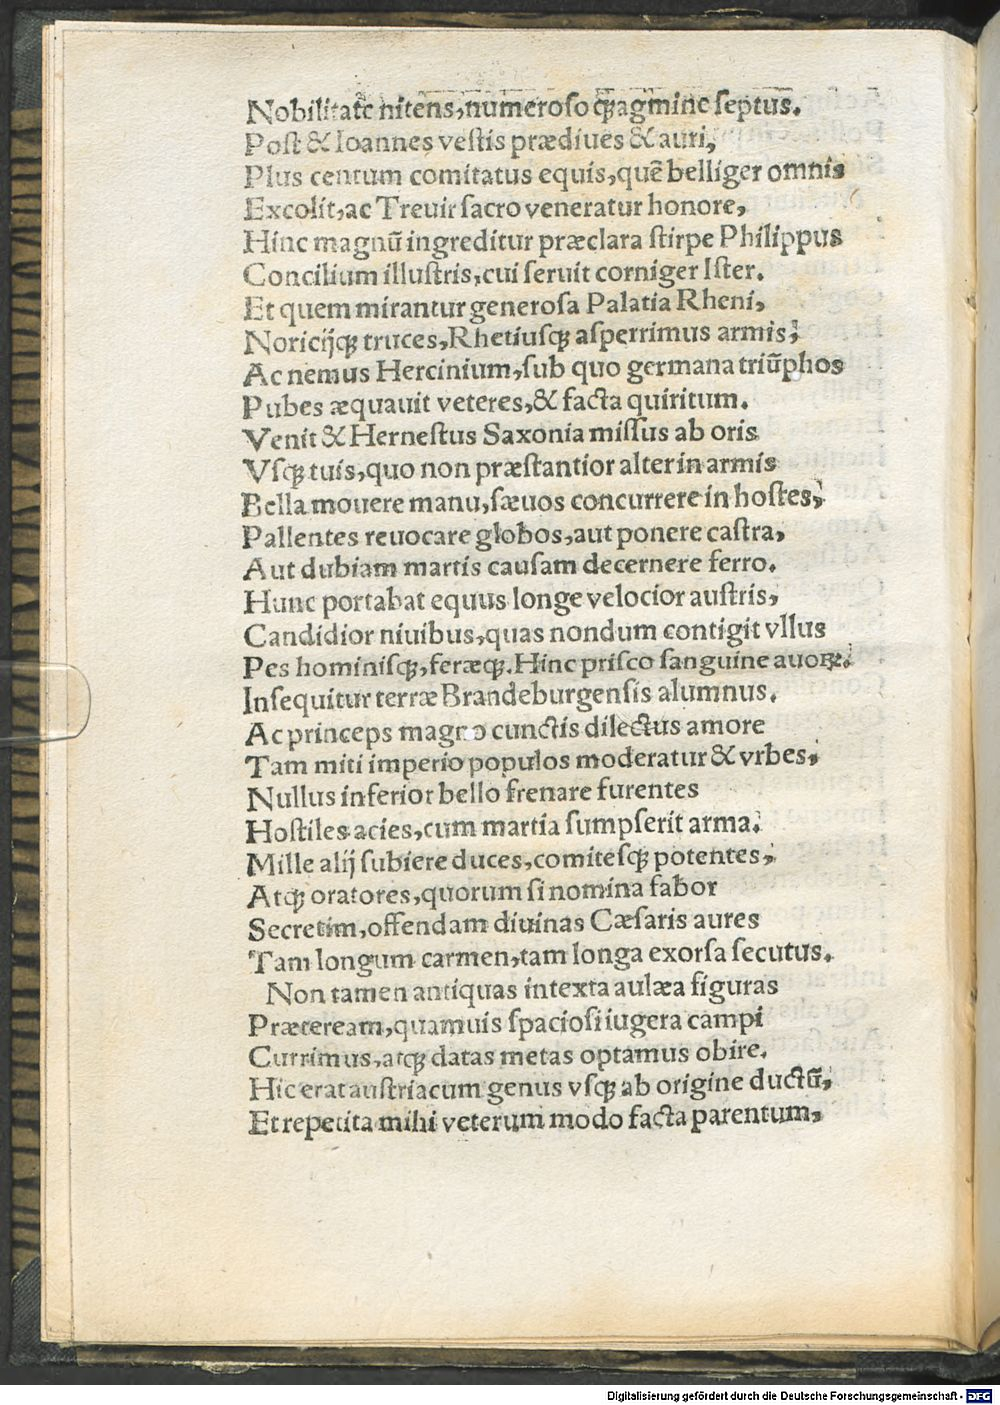 Nobilitate nitens,numeroso q̃ agmine septus.
Post & Ioannes vestis prædiues & auri,
Plus centum comitatus equis,quẽ belliger omnis
Excolit,ac Treuir sacro veneratur honore,
Hinc magnũ ingreditur præclara stirpe Philippus
Concilium illustris,cui seruit corniger Ister.
Et quem mirantur generosa Palatia Rheni,
Noricijqꝫ truces,Rhetiusqꝫ asperrimus armis,
Ac nemus Hercinium,sub quo germana triũphos
Pubes æquauit veteres,& facta quiritum.
Venit & Hernestus Saxonia missus ab oris
Vsqꝫ tuis,quo non præstantior alter in armis
Bella mouere manu,sæuos concurrere in hostes,
Pallentes reuocare globos,aut ponere castra,
Aut dubiam martis causam decernere ferro.
Hunc portabat equus longe velocior austris,
Candidior niuibus,quas nondum contigit vllus
Pes hominisqꝫ,feræqꝫ.Hinc prisco sanguine auoꝝ.
Insequitur terræ Brandeburgensis alumnus.
Ac princeps magno cunctis dilectus amore
Tam miti imperio populos moderatur & vrbes,
Nullus inferior bello frenare furentes
Hostiles acies,cum martia sumpserit arma.
Mille alij subiere duces,comitesqꝫ potentes,
Atqꝫ oratores,quorum si nomina fabor
Secretim,offendam diuinas Cæsaris aures
Tam longum carmen,tam longa exorsa secutus.
Non tamen antiquas intexta aulæa figuras
Præteream,quamuis spaciosi iugera campi
Currimus,atqꝫ datas metas optamus obire.
Hic erat austriacum genus vsqꝫ ab origine ductũ,
Et repetita mihi veterum modo facta parentum,
Digitalisierung gefördert durch die Deutsche Forschungsgemeinschaft - DFG